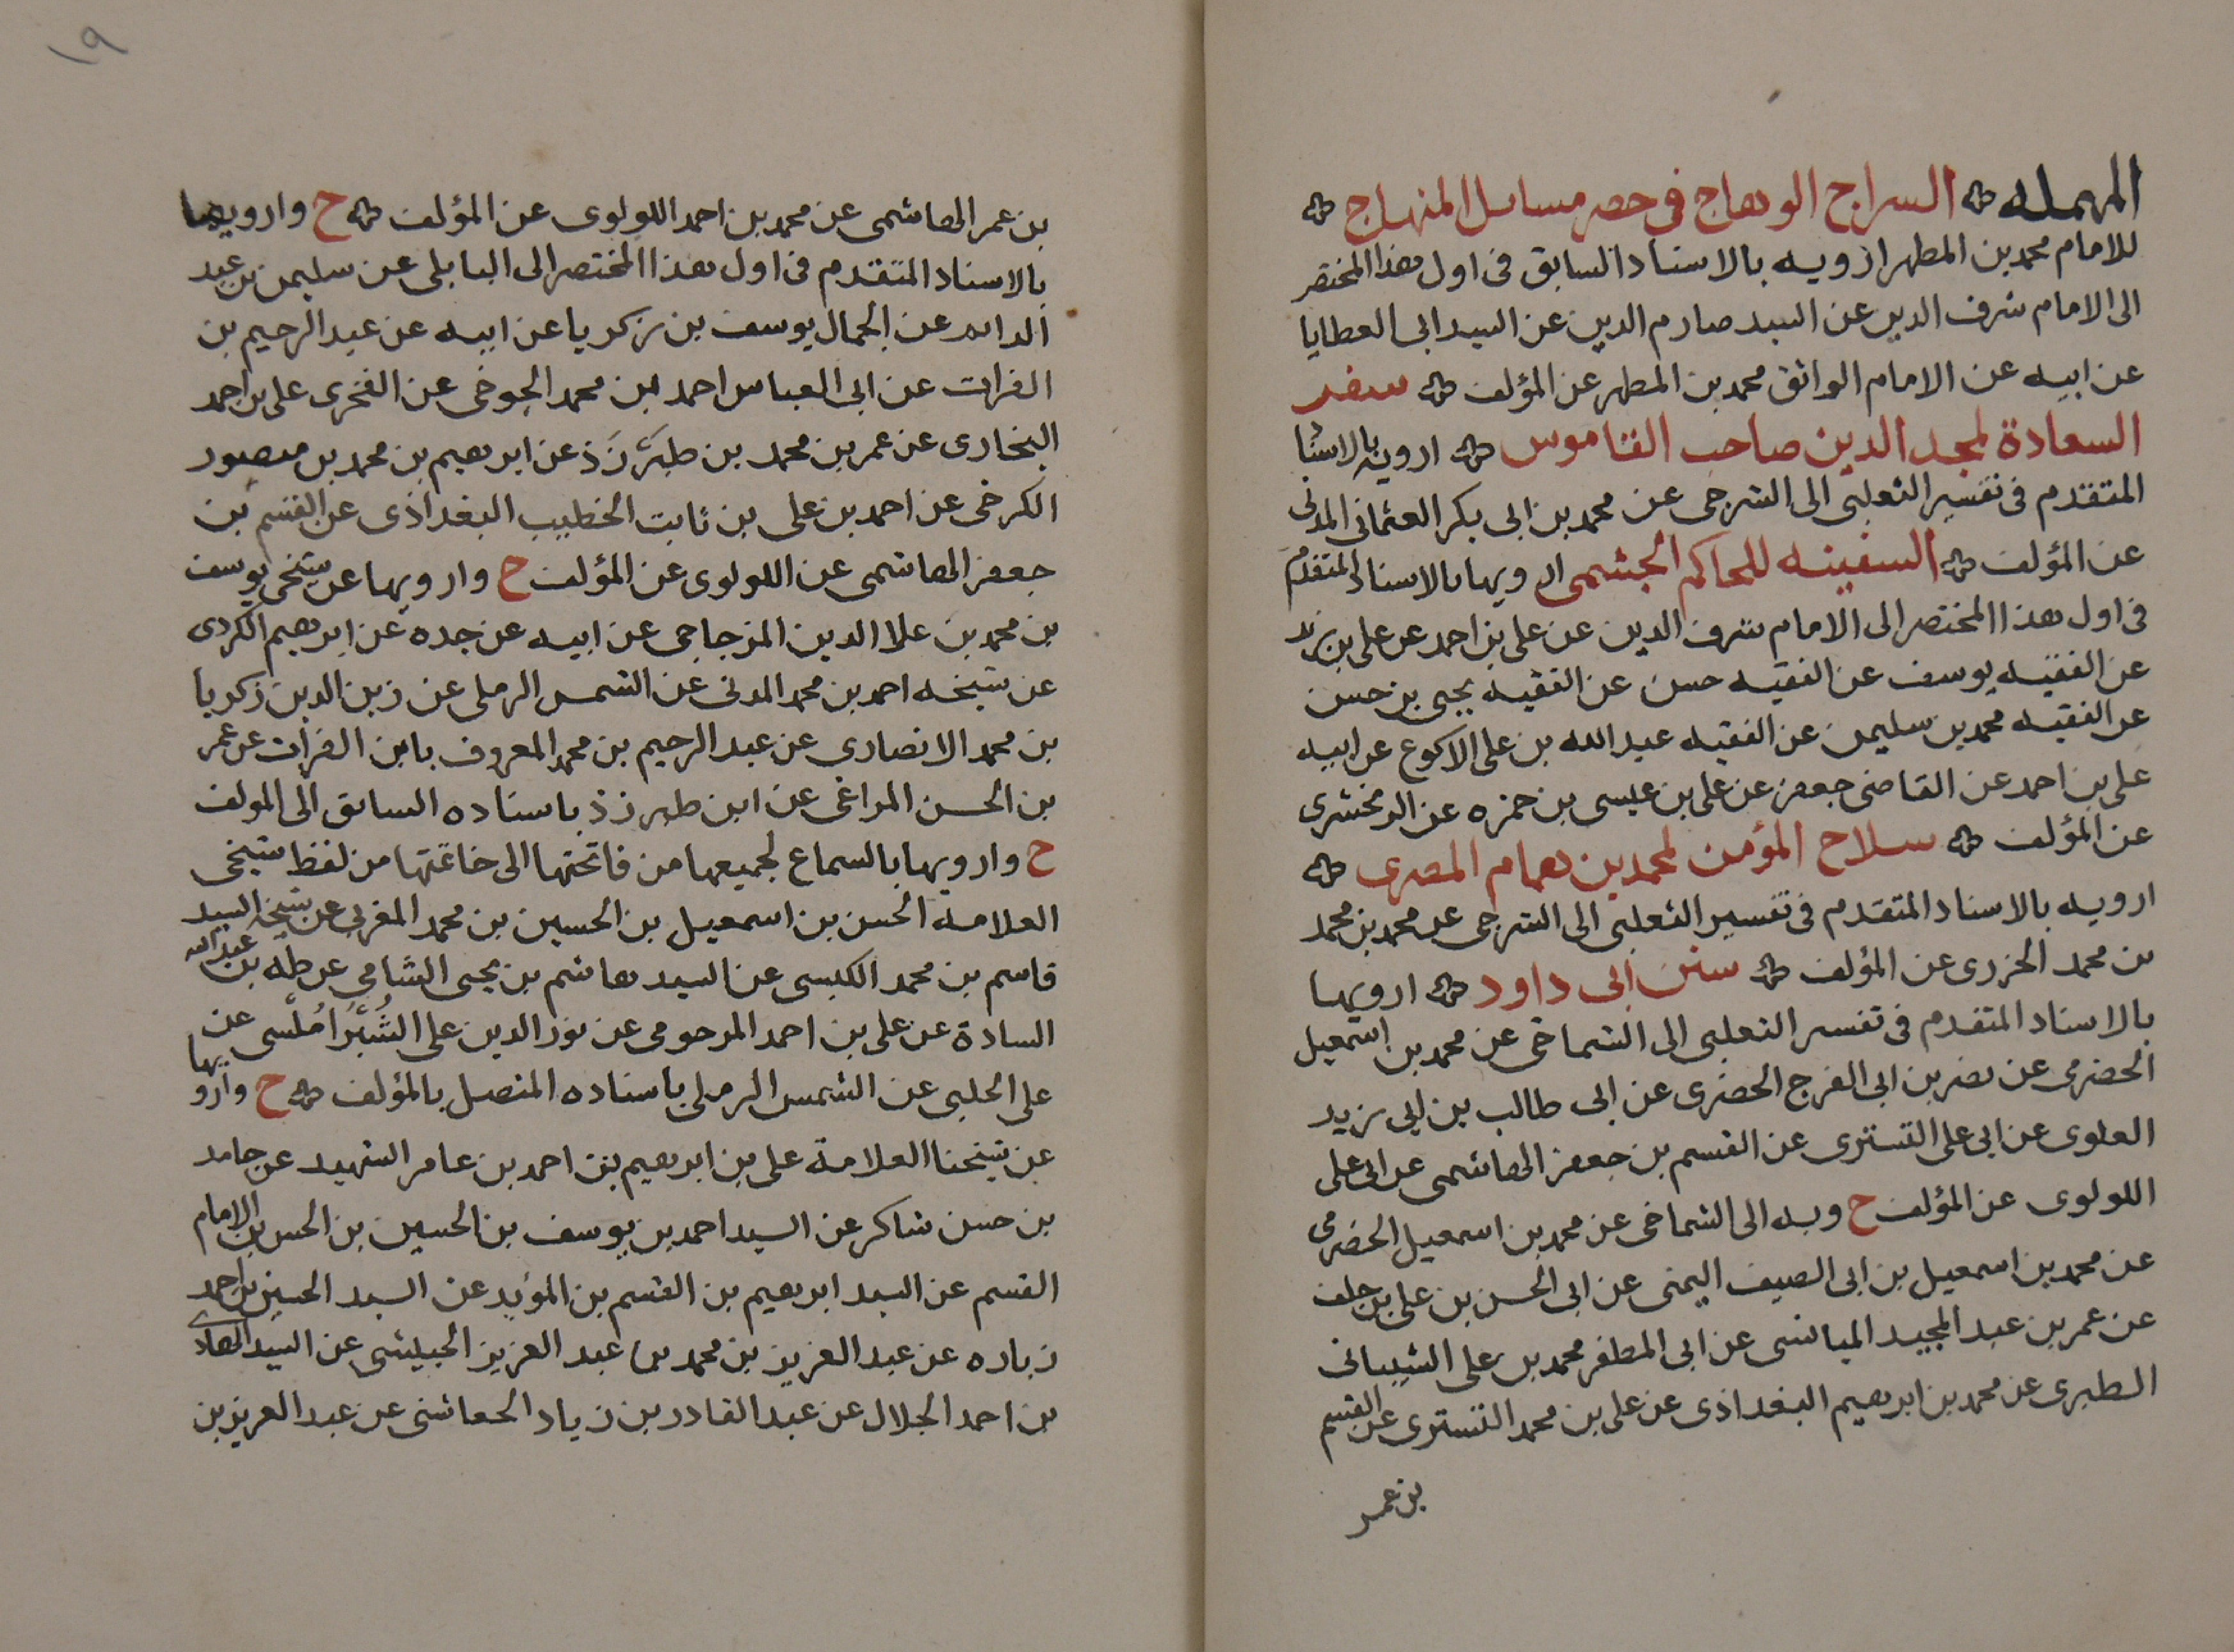 المهمله السراج الوهاج في حصر مسايل المنهاج
للامام محمد بن المطهر ارويه بالاسناد السابق في اول هذا المختصر
الى الامام شرف الدين عن السيد صارم الدين عن السيد ابى العطايا
عن ابيه عن الامام الواثق محمد بن المطهر عن المؤلف سفر
السعادة لمجد الدين صاحب القاموس ارويه بالاسناد
المتقدم في تفسير الثعلبى الى الشرجى عن محمد بن ابى بكر العثمانى المدنى
عن المؤلف السفينه للحاكم الجشمى ارويها بالاسناد المتقدم
في اول هذا المختصر الى الامام شرف الدين عن على بن احمد عن على بن زيد
عن الفقيه يوسف عن الفقيه حسن عن الفقيه يحيى بن حسن
عن الفقيه محمد بن سليمن عن الفقيه عبد الله بن على الاكوع عن ابيه
على بن احمد عن القاضى جعفر عن على بن عيسى بن حمزه عن الزمخشرى
عن المؤلف سلاح المؤمن لمحمد بن همام المصرى
ارويه بالاسناد المتقدم في تفسير الثعلبى الى الشرجى عن محمد بن محمد
بن محمد الجزرى عن المؤلف سنن ابى داود ارويها
بالاسناد المتقدم في تفسير الثعلبى الى الشماخى عن محمد بن اسمعيل
الحضرمى عن نصر بن ابى الفرج الحصرى عن ابى طالب بن ابى زيد
العلوى عن ابى على التسترى عن القسم بن جعفر الهاشمى عن ابى على
اللولوى عن المؤلف ح وبه الى الشماخى عن محمد بن اسمعيل الحضرمى
عن محمد بن اسمعيل بن ابى الصيف اليمنى عن ابى الحسن بن على بن خلف
عن عمر بن عبد المجيد الميانشى عن ابى المظفر محمد بن على الشيبانى
الطبرى عن محمد بن ابرهيم البغداذى عن على بن محمد التسترى عن القسم
بن عمر
١٩
بن عمر الهاشمى عن محمد بن احمد اللولوى عن المؤلف ح وارويها
بالاسناد المتقدم في اول هذا المختصر الى البابلى عن سليمن بن عبد
الدائم عن الجمال يوسف بن زكريا عن ابيه عن عبد الرحيم بن
الفرات عن ابى العباس احمد بن محمد الجوخى عن الفخرى على بن احمد
البخارى عن عمر بن محمد بن طبَرْزَذ عن ابرهيم بن محمد بن منصور
الكرخى عن احمد بن على بن ثابت الخطيب البغداذى عن القسم بن
جعفر الهاشمى عن اللولوى عن المؤلف ح وارويها عن شيخى يوسف
بن محمد بن علا الدين المزجاجى عن ابيه عن جده عن ابرهيم الكردى
عن شيخه احمد بن محمد المدنى عن الشمس الرملى عن زين الدين زكريا
بن محمد الانصارى عن عبد الرحيم بن محمد المعروف بابن الفرات عن عمر
بن الحسن المراغى عن ابن طبرزذ باسناده السابق الى المولف
ح وارويها بالسماع لجميعها من فاتحتها الى خاتمتها من لفظ شيخى
العلامة الحسن بن اسمعيل بن الحسين بن محمد المغربى عن شيخه السيد
قاسم بن محمد الكبسى عن السيد هاشم بن يحيى الشامى عن طه بن عبد الله
السادة عن على بن احمد المرحومى عن نور الدين على الشُبْرَامُلْسى عن
على الحلبى عن الشمس الرملى باسناده المتصل بالمؤلف ح وارويها
عن شيخنا العلامة على بن ابرهيم بن احمد بن عامر الشهيد عن حامد
بن حسن شاكر عن السيد احمد بن يوسف بن الحسين بن الحسن بن الامام
القسم عن السيد ابرهيم بن القسم بن المؤيد عن السيد الحسين بن احمد
زباره عن عبد العزيز بن محمد بن عبد العزيز الحبيشى عن السيد الهادى
بن احمد الجلال عن عبد القادر بن زياد الجعاشنى عن عبد العزيز بن